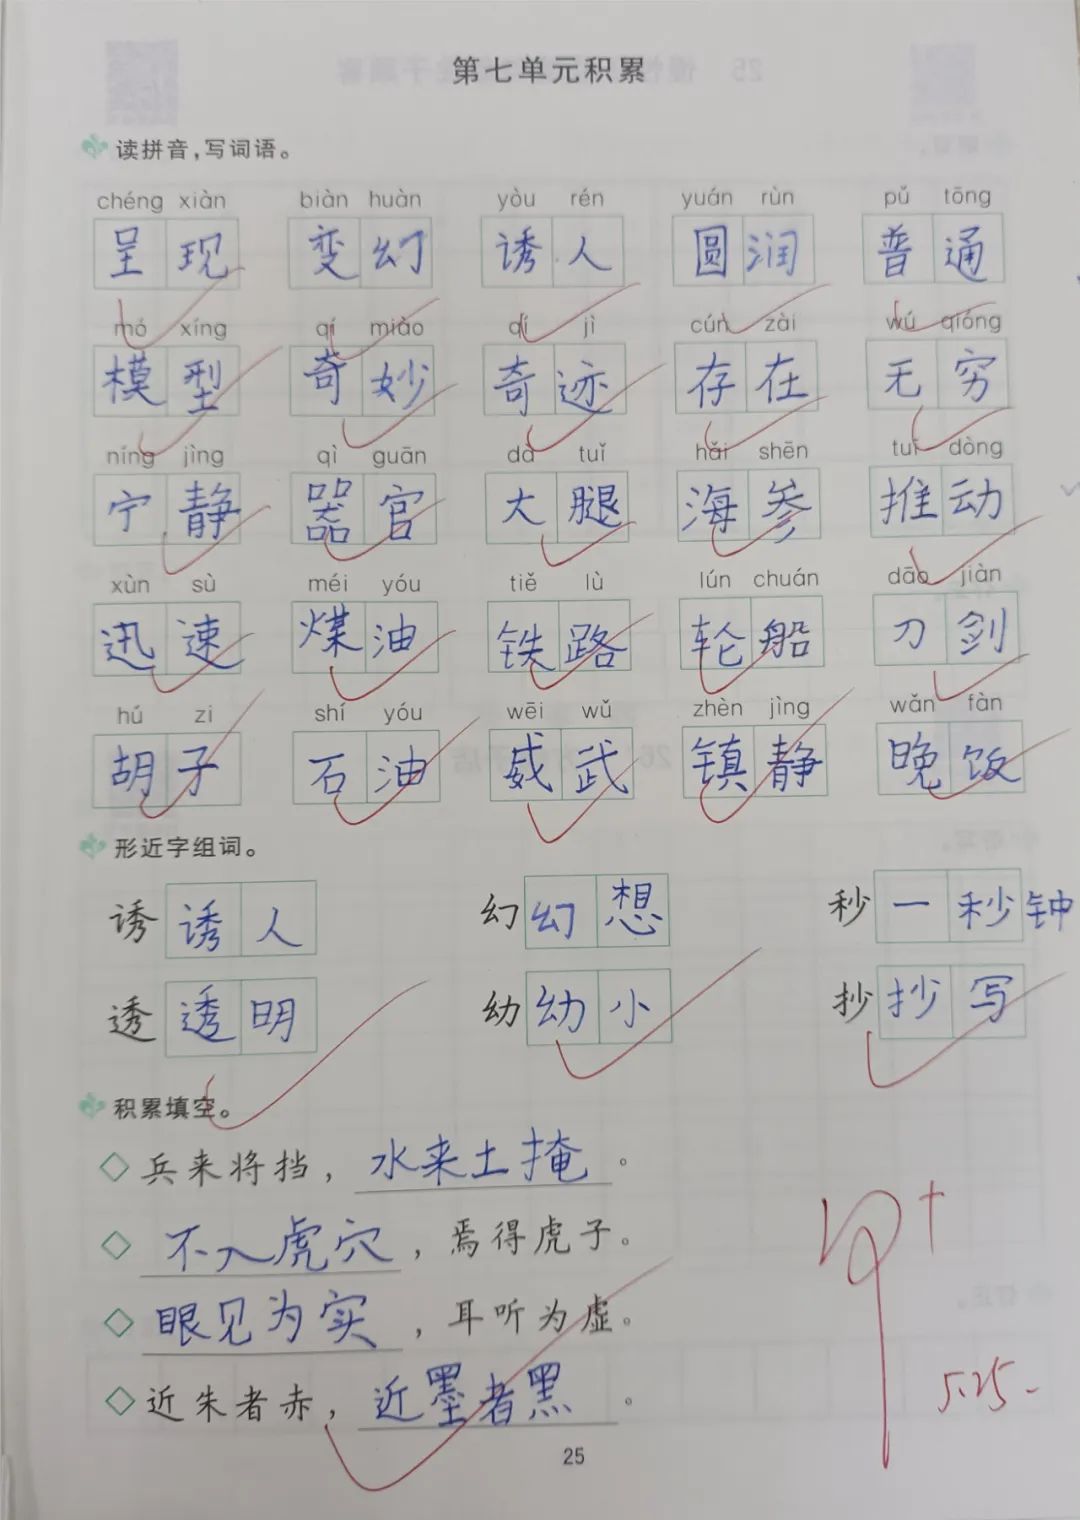 第七单元积累
读拼音,写词语。
chéng xiàn biàn huàn yòu rén yuán rùn pǔ tōng
呈现 变幻 诱人 圆润 普通
mó xíng qí miào qí jì cún zài wú qióng
模型 奇妙 奇迹 存在 无穷
níng jìng qì guān dà tuǐ hǎi shēn tuī dòng
宁静 器官 大腿 海参 推动
xùn sù méi yóu tiě lù lún chuán dāo jiàn
迅速 煤油 铁路 轮船 刀剑
hú zi shí yóu wēi wǔ zhèn jìng wǎn fàn
胡子 石油 威武 镇静 晚饭
形近字组词。
诱 诱人 幻 幻想 秒 一秒钟
透 透明 幼 幼小 抄 抄写
积累填空。
兵来将挡,水来土掩。
不入虎穴,焉得虎子。
眼见为实,耳听为虚。
近朱者赤,近墨者黑。
5.25
25